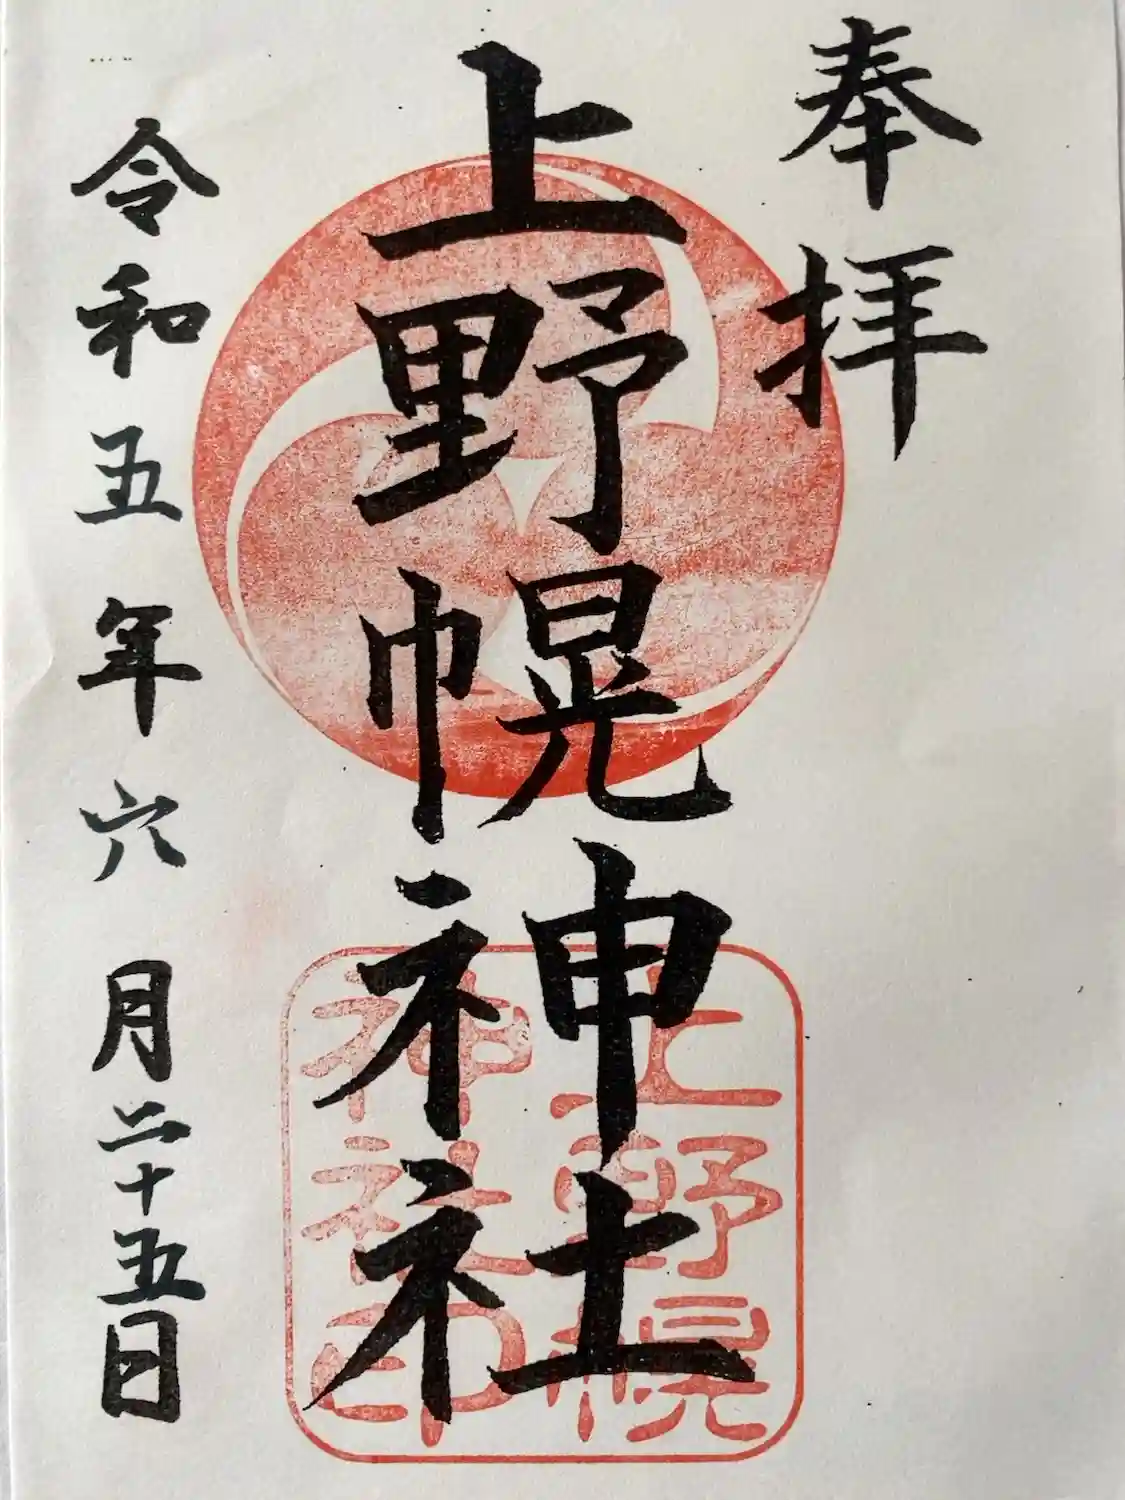 奉拝
上野幌神社
上野幌
神社印
令和五年六月二十五日